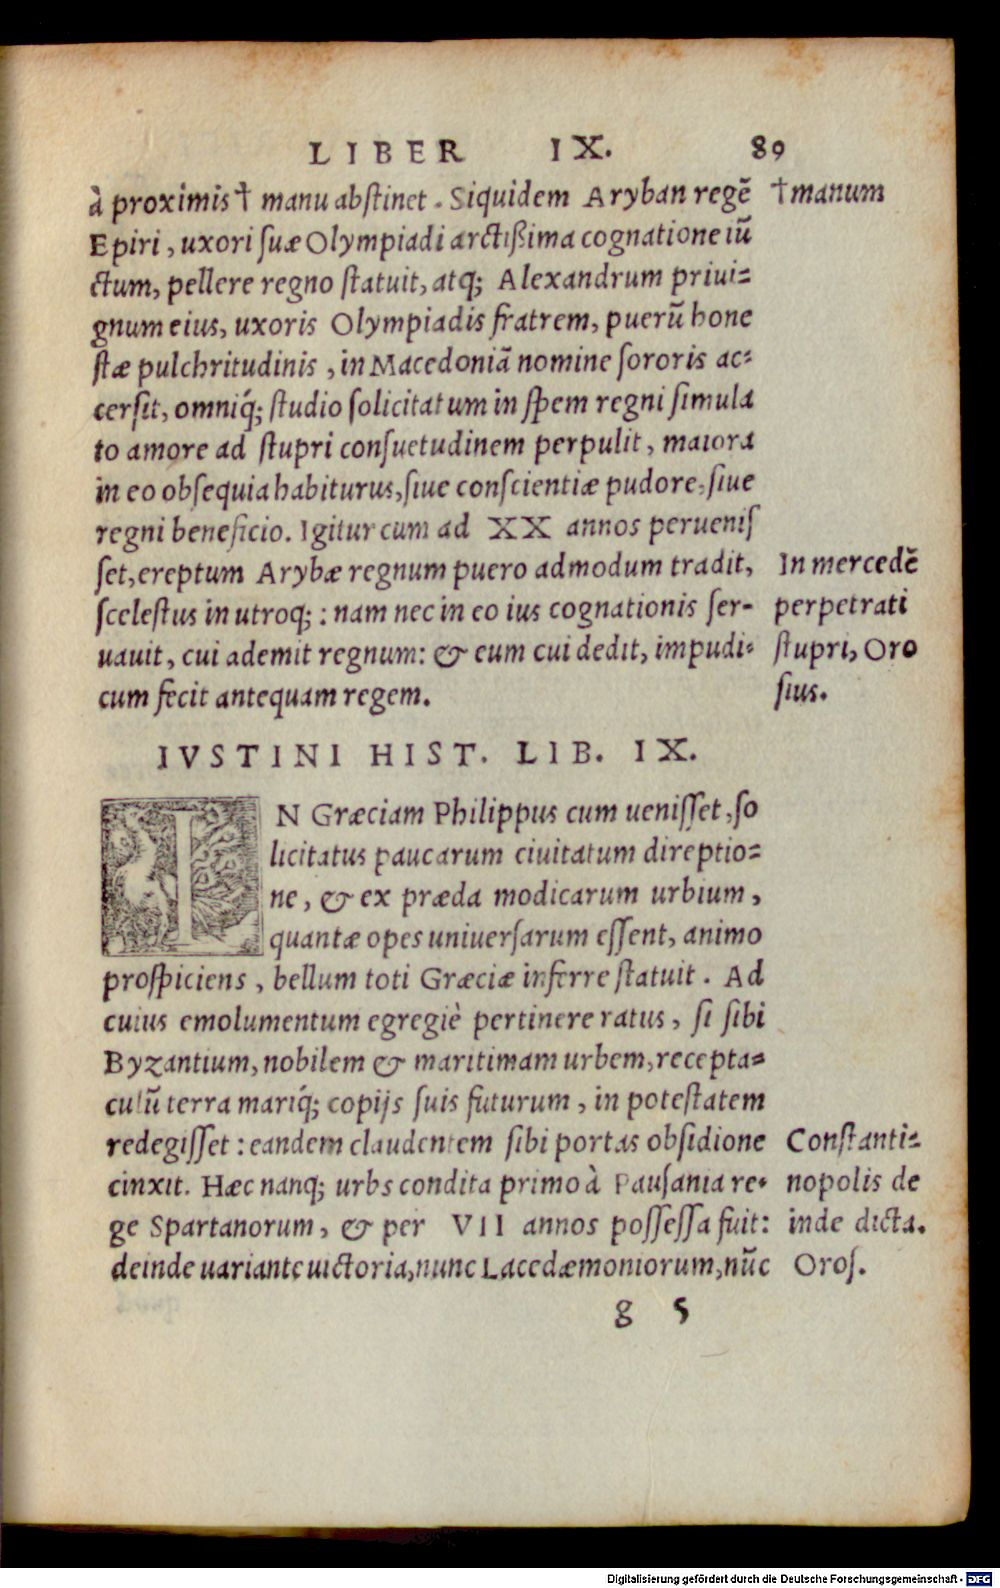 LIBER IX. 89
à proximis † manu abſtinet. Siquidem Aryban regē
†manum
Epiri, uxori ſuæ Olympiadi arctißima cognatione iū
ctum, pellere regno ſtatuit, atq; Alexandrum priui=
gnum eius, uxoris Olympiadis fratrem, puerū hone
ſtæ pulchritudinis, in Macedoniā nomine ſororis ac=
cerſit, omniq́; ſtudio ſolicitatum in ſpem regni ſimula
to amore ad ſtupri conſuetudinem perpulit, maiora
in eo obſequia habiturus, ſiue conſcientiæ pudore, ſiue
regni beneficio. Igitur cum ad XX annos perueniſ
ſet, ereptum Arybæ regnum puero admodum tradit,
ſceleſtus in utroq; : nam nec in eo ius cognationis ſer-
uauit, cui ademit regnum: & eum cui dedit, impudi=
cum fecit antequam regem.
In mercedē
perpetrati
ſtupri, Oro
ſius.
IVSTINI HIST. LIB. IX.
IN Græciam Philippus cum ueniſſet, ſo
licitatus paucarum ciuitatum direptio=
ne, & ex præda modicarum urbium,
quantæ opes uniuerſarum eſſent, animo
proſpiciens, bellum toti Græciæ inferre ſtatuit. Ad
cuius emolumentum egregiè pertinere ratus, ſi ſibi
Byzantium, nobilem & maritimam urbem, recepta=
culū terra mariq́; copijs ſuis futurum, in poteſtatem
redegiſſet: eandem claudentem ſibi portas obſidione
cinxit. Hæc nanq; urbs condita primo à Pauſania re=
ge Spartanorum, & per VII annos poſſeſſa fuit:
deinde uariante uictoria, nunc Lacedæmoniorum, nūc
Conſtanti=
nopolis de
inde dicta.
Oroſ.
g 5
Digitalisierung gefördert durch die Deutsche Forschungsgemeinschaft - DFG